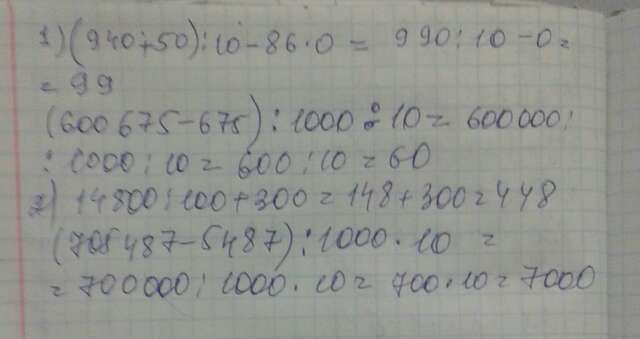 1) (940+50) : 10 - 86 · 0 = 990 : 10 - 0 =
= 99
(600 675 - 675) : 1000 : 10 = 600 000 :
: 1000 : 10 = 600 : 10 = 60
2) 14800 : 100 + 300 = 148 + 300 = 448
(705 487 - 5487) : 1000 · 10 =
= 700000 : 1000 · 10 = 700 · 10 = 7000